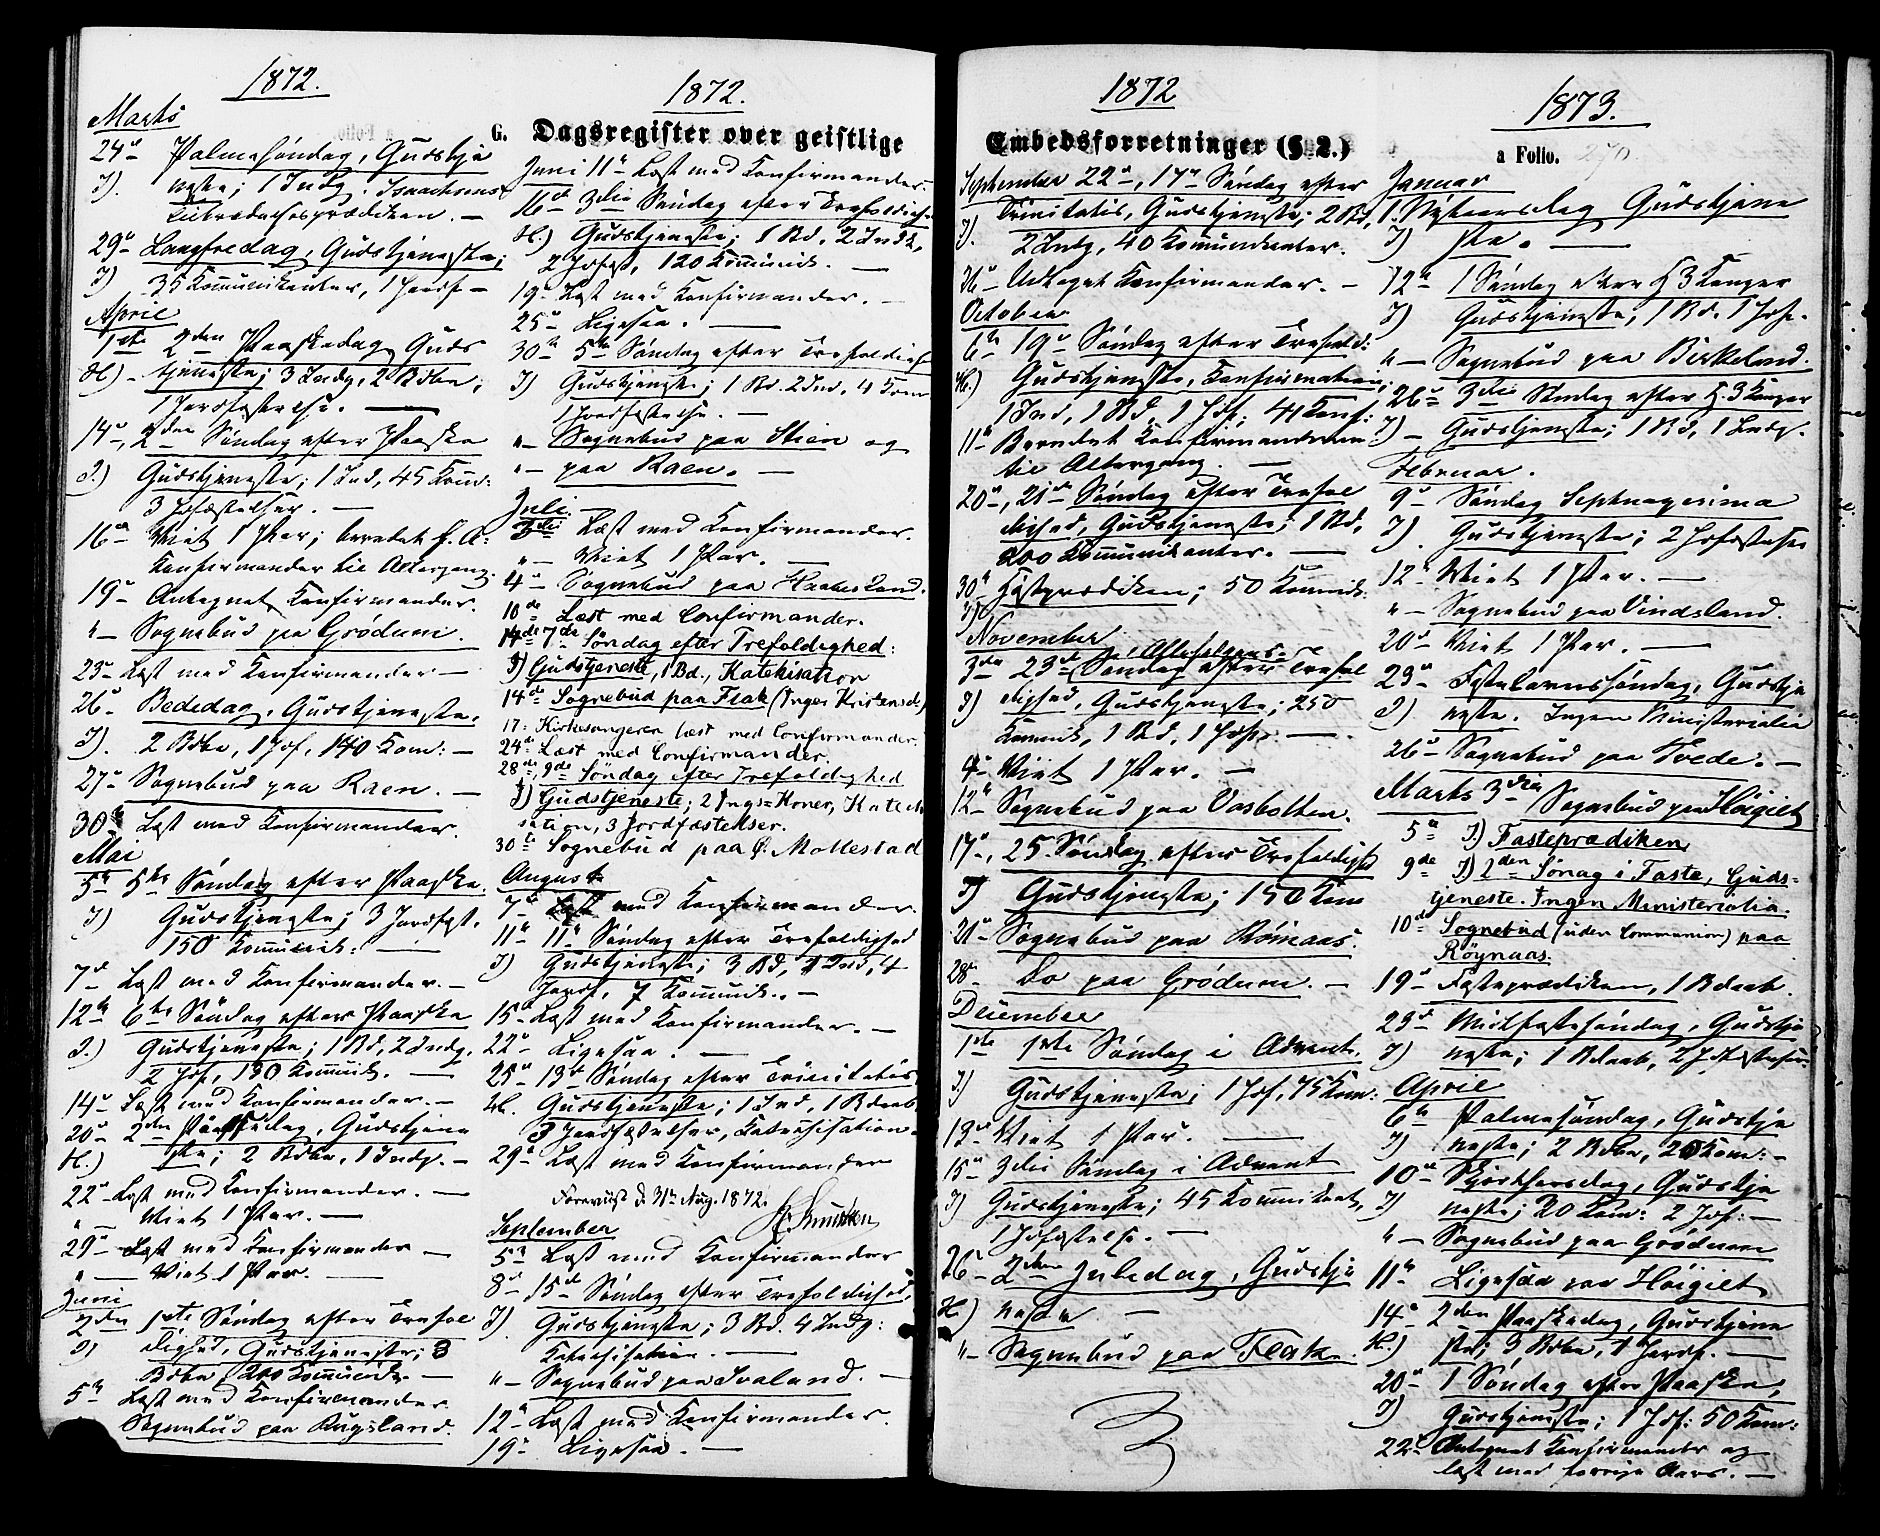 1872.
Marts
24de Palmesøndag, Gudstje
I). neste; 1 Indg. Isaachsens
Tiltrædelsesprædiken. —
29de Langfredag, Gudstjeneste;
I) 35 Kommunikanter, 1 Jordf —
April
1ste 2den Paaskedag Guds
H) - tjeneste; 3 Indg, 2 Bdbe;
1 Jordfæstelse. —
14de, 2den Søndag efter Paaske
I.) Gudstjeneste; 1 Ind, 45 Kom:
3 Jofæstelser. —
16de Viet 1 Par; beredet f. A:
Konfirmander til Altergang.
19de Antegnet Konfirmander.
" — Sognebud paa Grødum.
23de Læst med Konfirmander —
26de Bededag, Gudstjeneste.
I). 2 Bdbe, 1 Jof, 140 Kom: —
27de Sognebud paa Raen. —
30te Læst med Konfirmander.
Mai
5te 5te Søndag efter Paaske.
I) Gudstjeneste; 3 Jordfæst,
150 Kommunik: —
7de Læst med Konfirmander. —
12te 6te Søndag efter Paaske
I.) Gudstjeneste; 1 Bd, 2 Indg,
2 Jof, 130 Kommunik. —
14de Læst med Konfirmander. —
20de 2den Pintsedag, Gudstjene
H.) ste; 2 Bdbe, 1 Indg. —
22de Læst med Konfirmander. —
" Viet 1 Par. —
29de Læst med Konfirmander —
" — Viet 1 Par. —
Juni
2den 1ste Søndag efter Trefol
I) dighed, Gudstjeneste; 3
Bdbe, 200 Kommunik. —
5te Læst med Konfirmander.
Sognebud paa Rugsland.
1872.
G. Dagsregister over geistlige
Juni 11te Læst med Konfirmander.
16de 3die Søndag efter Trefoldigh.
H.) Gudstjeneste; 1 Bd, 2 Indl,
2 Jofæst, 120 Kommunik. —
19- Læst med Konfirmander. —
25de Ligesaa. —
30te 5te Søndag efter Trefoldigh
I) Gudstjeneste; 1 Bd. 2 Ind, 4 Kom
1 Jordfæstelse. —
" — Sognebud paa Stien og
" — paa Raen. —
Juli.
3die Læst med Konfirmander.
" — Viet 1 Par. —
4de Sognebud paa Haabesland.
10de Læst med Confirmander.
14de 7de Søndag efter Trefoldighed:
I) Gudstjeneste, 1 Bd., Katekisation
14de Sognebud paa Flak (Inger Kristensd.)
17: Kirkesangeren læst med Confirmander.
24de Læst med Confirmander.
28de, 9de Søndag efter Trefoldighed
I) Gudstjeneste; 2 Ings=Koner, Kateki
sation, 3 Jordfæstelser.
30te Sognebud paa Ø. Mollestad
August
7de Læst med Konfirmander.
11te 11te Søndag efter Trefoldighed
I) Gudstjeneste; 3 Bd, 2 Ind, 4
Jordf, 7 Kommunik. —
15de Læst med Konfirmander. —
22de Ligesaa. —
25de 13de Søndag efter Trinitatis
H. Gudstjeneste; 1 Ind, 1 Bdaab,
3 Jordfæstelser, Katechisation.
29de Læst med Konfirmander
Foreviist d. 31te Aug. 1872.
September
5te Læst med Konfirmander
8de 15de Søndag efter Trefoldighed,
I) Gudstjeneste; 3 Bd. 4 Indg:
Katechisation. —
" — Sognebud paa Ivaland. —
12te Læst med Konfirmander.
19de Ligesaa. —
1872
Embedsforretninger (§. 2.)
September 22de, 17de Søndag efter
I). Trinitatis, Gudstjeneste; 2 Bd,
2 Indg, 40 Kommunikanter.
Udtaget Konfirmander. —
October
6te 19de Søndag efter Trefold:
H.) Gudstjeneste, Konfirmation;
1 Ind, 1 Bd, 1 Jof; 41 Konf:
11te Beredet Konfirmanderne
til Altergang. —
20de, 21de Søndag efter Trefol
dighed, Gudstjeneste; 1 Bd,
200 Kommunikanter. —
30te Høstprædiken; 50 Kommunik.
I)
November
Allehelgens-
3die 23de Søndag efter Trefol
I) dighed, Gudstjeneste; 250
Kommunik, 1 Bd, 1 Jof. —
4de Viet 1 Par. —
12te Sognebud paa Vasbotten.
17de, 25 Søndag efter Trefoldighd
I) Gudstjeneste; 150 Kom
21de Sognebud paa Rømaas.
28de Do paa Grødum. —
December
1ste 1ste Søndag i Advent.
I) Gudstjeneste; 1 Jof, 75 Kom:
13de Viet 1 Par. —
15de 3die Søndag i Advent
I) Gudstjeneste; 45 Kommunikant,
1 Jofæstelse. —
26- 2den Juledag, Gudstje
H.) neste —
" — Sognebud paa Flak.
1873.
a Folio. 270.
Januar
1. Nytaarsdag Gudstjene
I) ste. —
12te 1 Søndag efter H 3 Konger
I) Gudstjeneste, 1 Bd. 1 Jof.
" — Sognebud paa Birkeland.
26de 3die Søndag efter H 3 Konger
I) — Gudstjeneste; 1 Bd, 1 Indg.
Februar.
9de Søndag Septuagesima
I). Gudstjeneste; 2 Jofæstelser
12te Viet 1 Par. —
" — Sognebud paa Vindsland.
20de Viet 1 Par. —
23de Fastelavnssøndag, Gudstje
I) neste. Ingen Ministerialia
26de Sognebud paa Tvede. —
Marts 3die Sognebud paa Høigilt
5te I) Fasteprædiken
9de I) 2den Sønag i Faste, Guds-
tjeneste. Ingen Ministerialia.
10de Sognebud (uden Communion) paa
Røynaas.
19de Fasteprædiken, 1 Bdaab.
23de Midtfastesøndag, Gudstje
I) neste; 1 Bdaab, 2 Jofæstelser
April
6te Palmesøndag, Gudstje
I) neste; 2 Bdbe, 20 Kom: —
10de Skjærthorsdag, Gudstje
I) neste; 20 Kom: 2 Jof: —
" — Sognebud paa Grødum
11te Ligesaa paa Høigilt
14de 2den Paaskedag, Gudstjene
H.) ste; 3 Bdbe, 1 Jordf. —
20de 1 Søndag efter Paaske,
I) Gudstjeneste; 1 Jof: 50 Kom:
22de Antegnet Konfirmander og
læst med forrige Aars. —